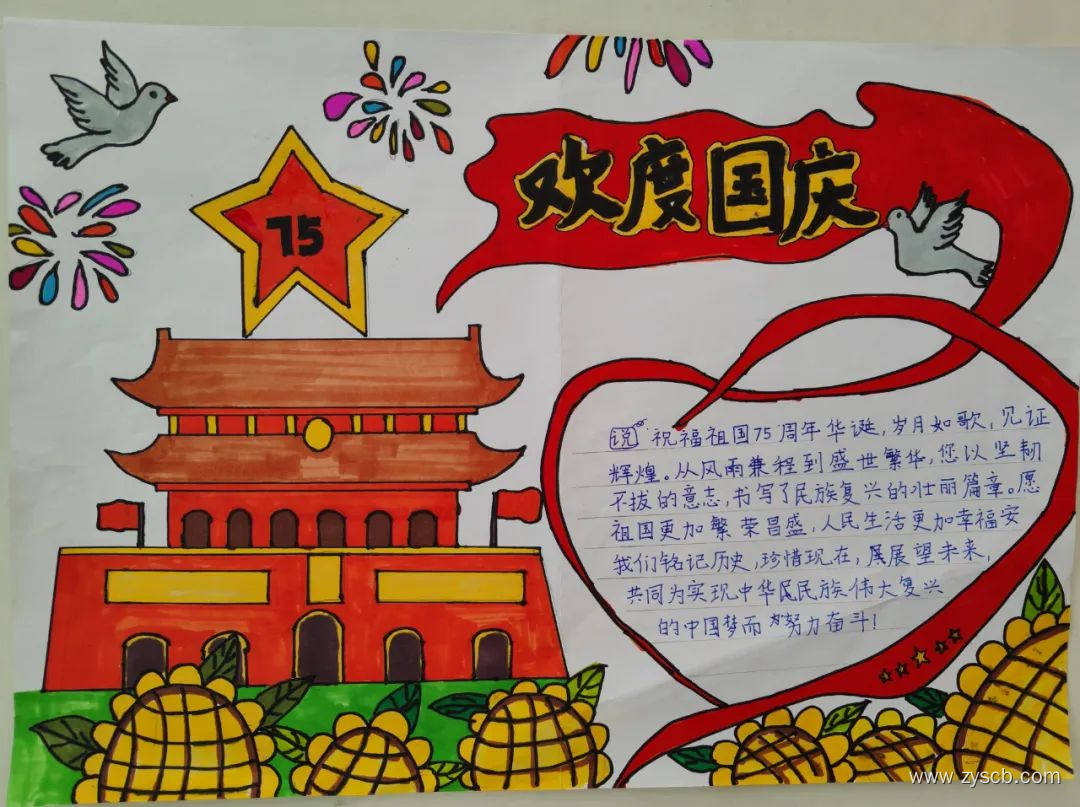 75
欢度国庆
祝福祖国75周年华诞,岁月如歌,见证
辉煌。从风雨兼程到盛世繁华,您以坚韧
不拔的意志,书写了民族复兴的壮丽篇章。愿
祖国更加繁荣昌盛,人民生活更加幸福安
我们铭记历史,珍惜现在,展望未来,
共同为实现中华民民族伟大复兴
的中国梦而努力奋斗!
www.zyscb.com